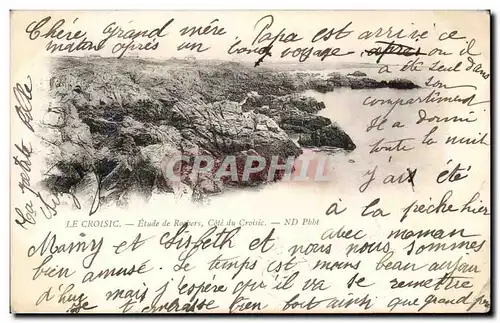 Chère grand mère Papa est arrivé ce
matin après un bon voyage après ou il
a été seul dans
son
compartiment
Il a dormi
toute la nuit
J'ai été
à la pêche hier
avec maman
Mainy et et nous nous sommes
bien amusé. Le temps est moins beau aujour
d'hui mais j'espère qu'il va se remettre
Je t'embrasse bien fort ainsi que grand père
ta petite fille
LE CROISIC. — Étude de Rochers, Côté du Croisic. — ND Phot
CPARAMA.COM